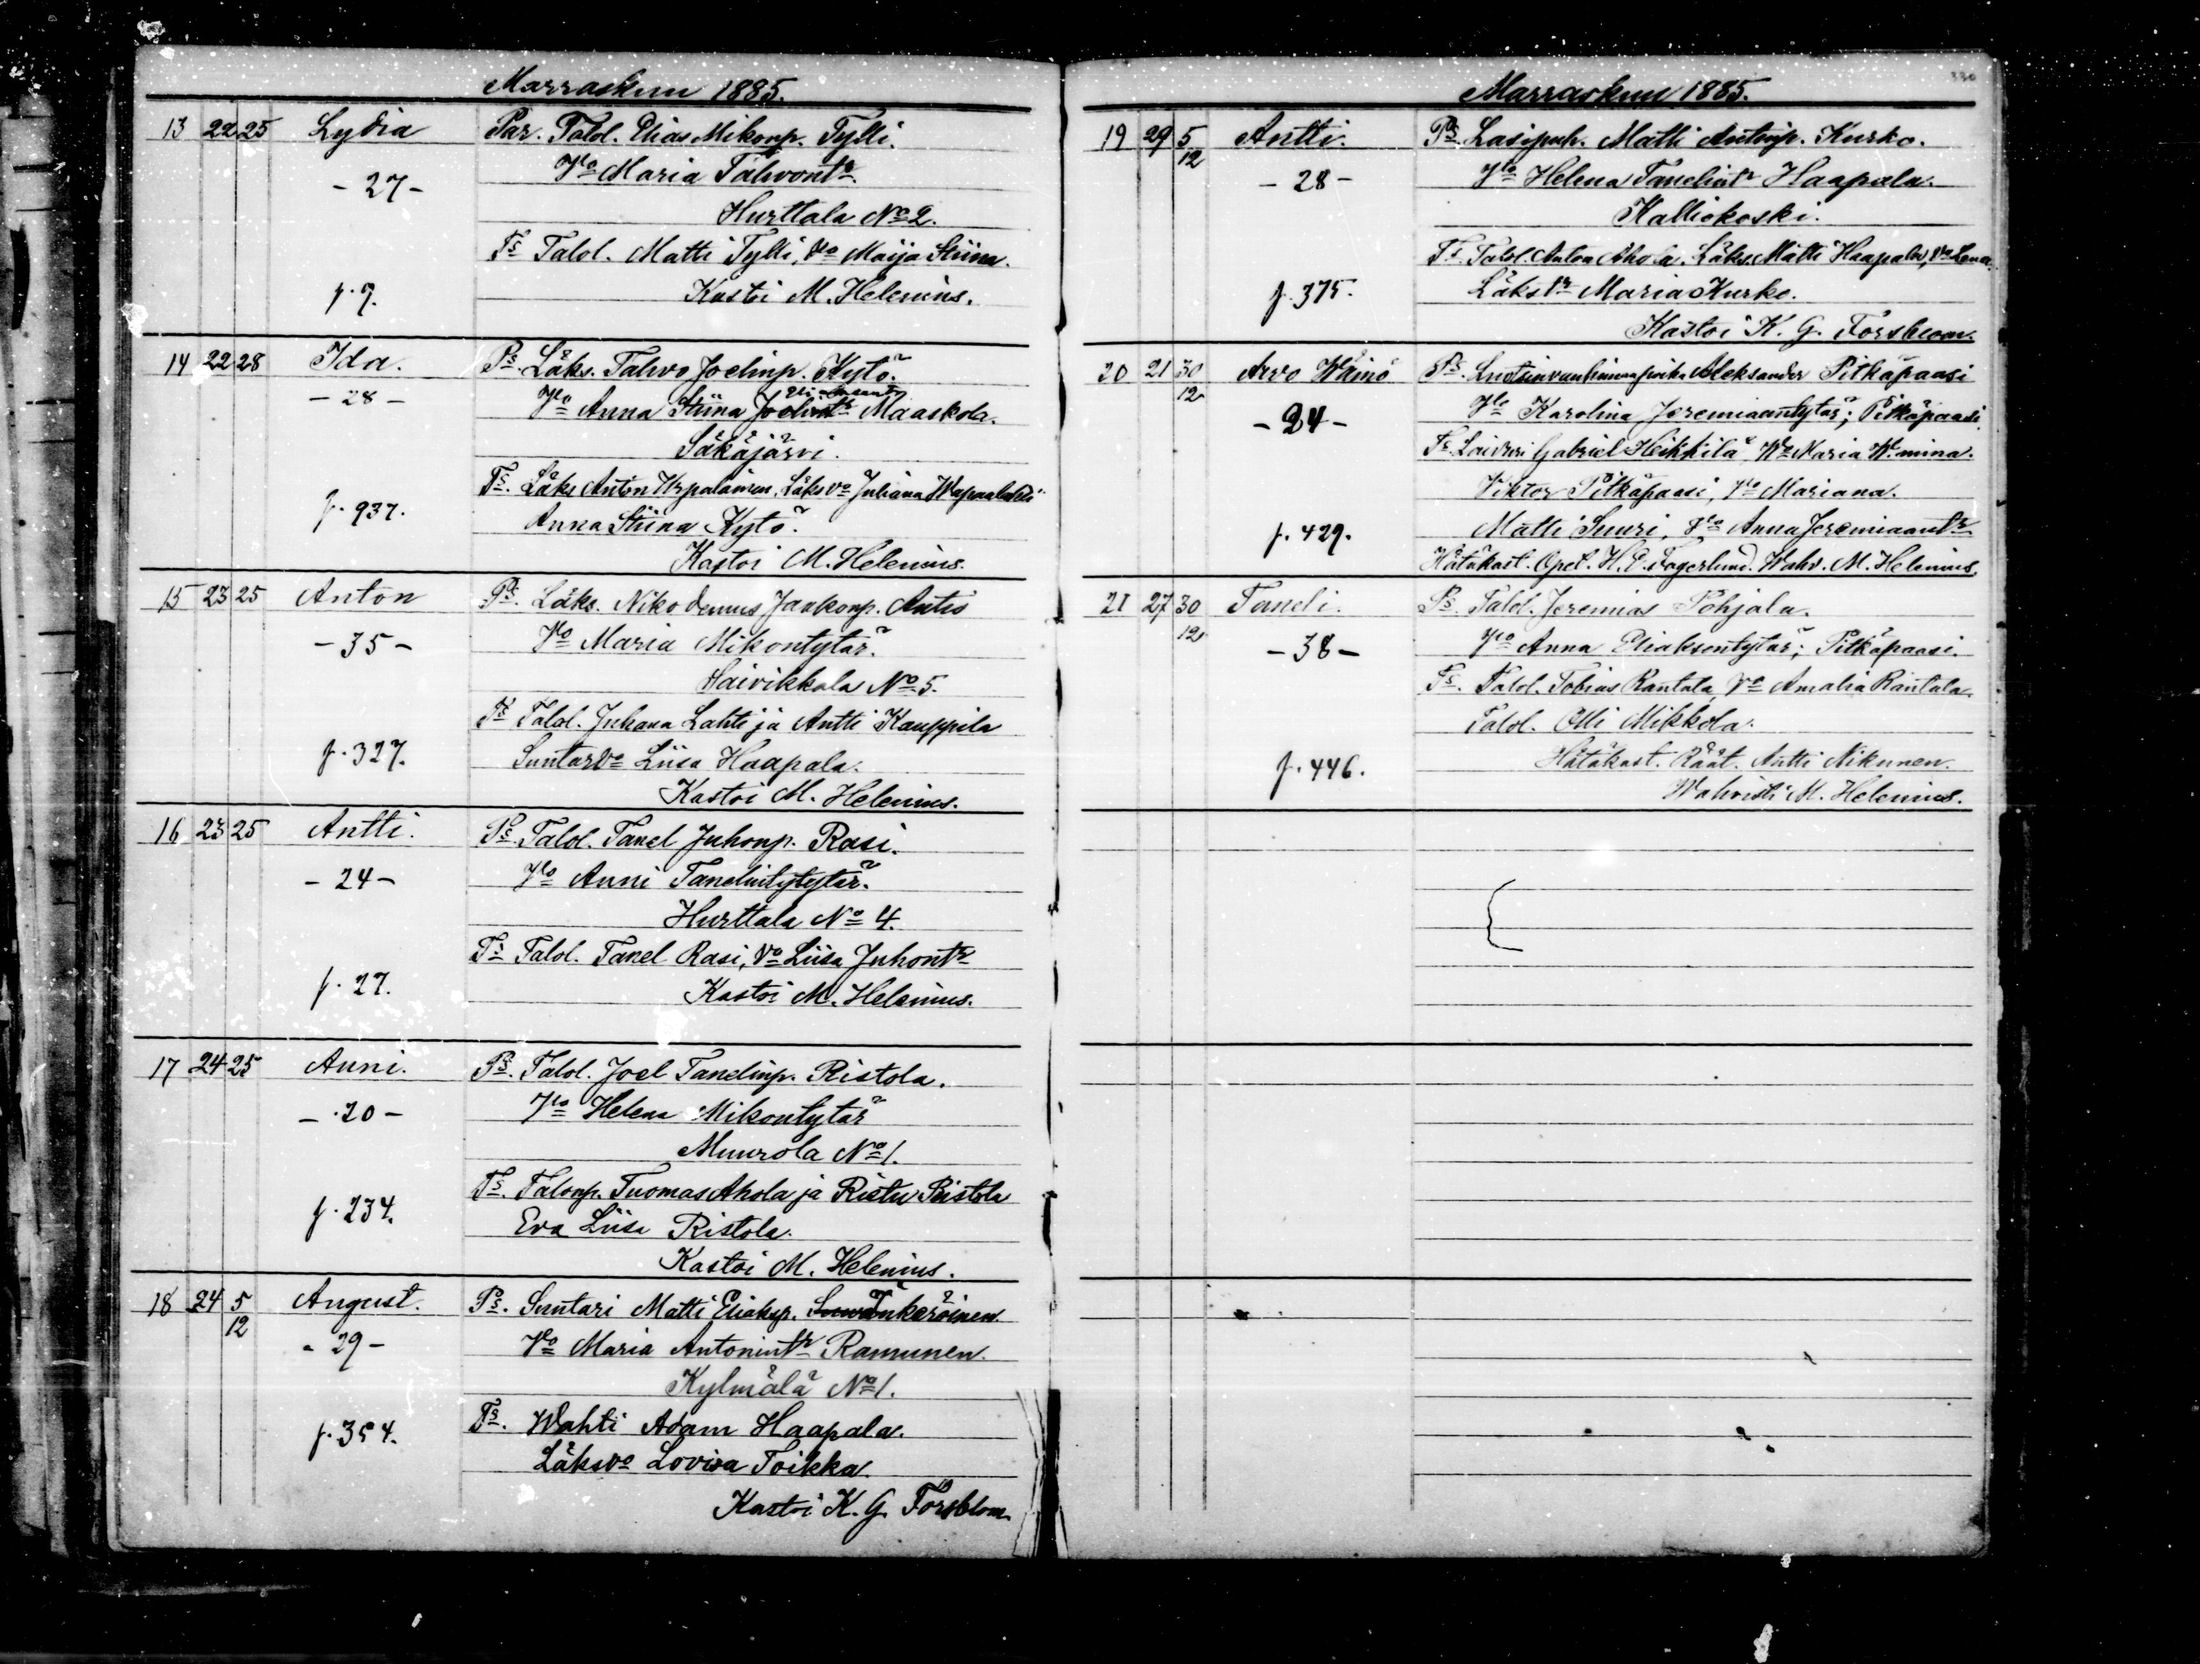 Marraskuu 1885.
13 22 25 Lydia Par. Talol. Elias Mikonp. Tylli.
- 27 - Vmo Maria Tahvontr.
Hurttala No 2.
Ts Talol. Matti Tylli, Vo Maija Stiina.
p. 9. Kastoi M. Helenius.
14 22 28 Ida. Ps. Läks. Tahvo Joelinp. Kytö.
- 28 - Vmo Anna Stiina Maaskola.
Säkäjärvi.
Ts. Läks Anton Läks vo Juliana
p. 937. Anna Stiina Kytö.
Kastoi M. Helenius.
15 23 25 Anton Ps. Läks. Nikodemus Jaakonp. Autio
- 35 - Vmo Maria Mikontytär.
Häivikkala No. 5.
Ts Talol. Juhana Lahti ja Antti Kauppila
p. 327. Suntarvo Liisa Haapala.
Kastoi M. Helenius.
16 23 25 Antti. Ps. Talol. Tanel Juhonp. Rasi.
- 24 - Vmo Anni Tanelintytytär.
Hurttala No 4.
Ts Talol. Tanel Rasi, Vo Liisa Juhontr
p. 27. Kastoi M. Helenius.
17 24 25 Anni. Ps. Talol. Joel Tanelinp. Ristola.
- 20 - Vmo Helena Mikontytär
Muurola No 1.
Ts. Talonp. Tuomas Ahola ja Ristu Ristola
p. 234. Eva Liisa Ristola.
Kastoi M. Helenius.
18 24 5/12 August. Ps. Suntari Matti Eliaksp. Inkeröinen.
- 29 - Vmo Maria Antonintr Ramunen.
Kylmälä No 1.
Ts. Wahti Adam Haapala.
p. 354. Läksvo Lovisa Toikka.
Kastoi K. G. Forsblom.
330
Marraskuu 1885.
19 29 5/12 Antti. Ps. Lasipuh. Matti Antinp. Kurko.
- 28 - Vmo Helena Tanelintr Haapala.
Kalliokoski.
Ts. Talol. Anton Ahola. Läks. Matti Haapala, Vo Lena.
p. 375. Läks tr Maria Kurko.
Kastoi K. G. Forsblom.
20 21 30/12 Arvo Wäinö Ps. Luotsinvanhimman poika Aleksander Pitkäpaasi
- 24 - Vmo Karolina Jeremiaantytär; Pitkäpaasi.
Ts. Gabriel Heikkilä, Vo Maria Wmina.
Viktor Pitkäpaasi, Vmo Mariana.
p. 429. Matti Suuri, Vmo Anna Jeremiaantr
Hätäkast. Opet. H. E. Fagerlund. Wahv. M. Helenius.
21 27 30/12 Taneli. Ps. Talol. Jeremias Pohjala.
- 38 - Vmo Anna Eliaksentytär; Pitkäpaasi.
Ts. Talol. Tobias Rantala, Vo Amalia Rantala.
Talol. Olli Mikkola.
p. 446. Hätäkast. Räät. Antti Nikunen.
Wahvisti M. Helenius.